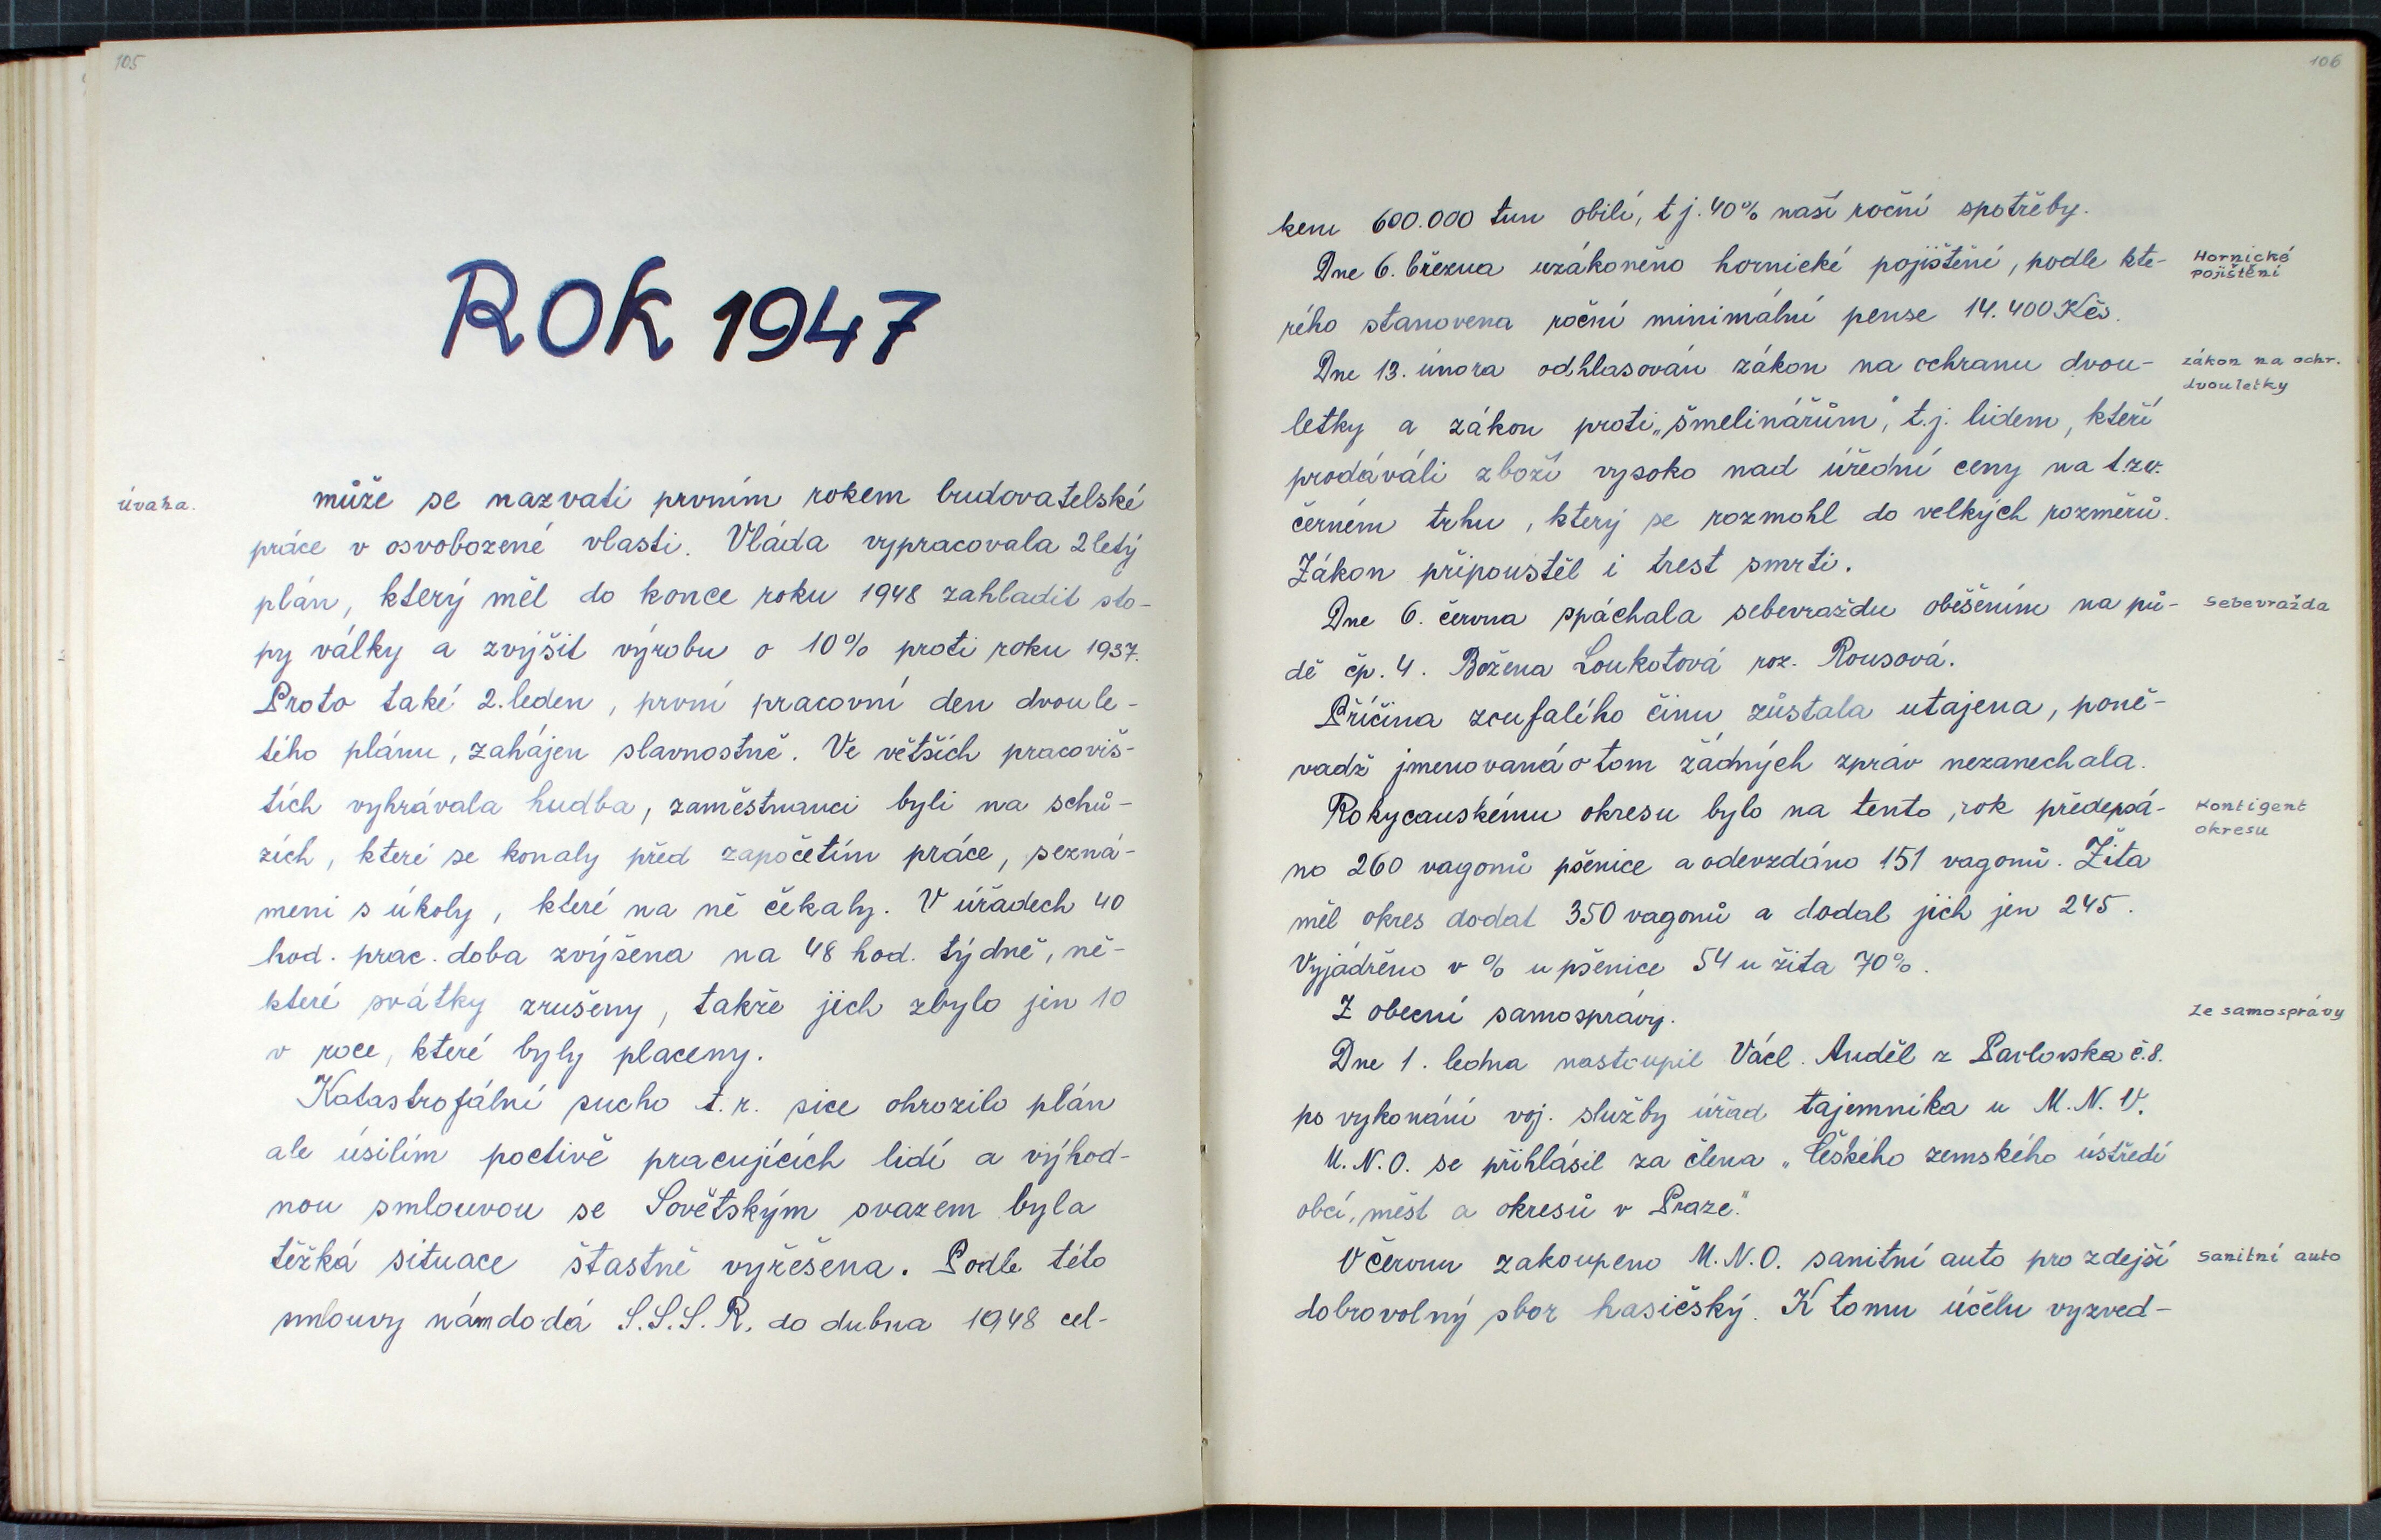 105
ROK 1947
úvaha.
může se nazvati prvním rokem budovatelské
práce v osvobozené vlasti. Vláda vypracovala 2letý
plán, který měl do konce roku 1948 zahladit sto-
py války a zvýšit výrobu o 10% proti roku 1937.
Proto také 2.leden, první pracovní den dvoule-
tého plánu, zahájen slavnostně. Ve větších pracoviš-
tích vyhrávala hudba, zaměstnanci byli na schů-
zích, které se konaly před započetím práce, sezná-
meni s úkoly, které na ně čekaly. V úřadech 40
hod. prac. doba zvýšena na 48 hod. týdně, ně-
které svátky zrušeny, takže jich zbylo jen 10
v roce, které byly placeny.
Katastrofální sucho t.r. sice ohrozilo plán
ale úsilím poctivě pracujících lidí a výhod-
nou smlouvou se Sovětským svazem byla
těžká situace šťastně vyřešena. Podle této
smlouvy nám dodá S.S.S.R. do dubna 1948 cel-
106
kem 600.000 tun obilí, t j. 40% naší roční spotřeby.
Dne 6. března uzákoněno hornické pojištění, podle kte-
Hornické
pojištění
rého stanovena roční minimální pense 14.400 Kčs.
Dne 13. února odhlasován zákon na ochranu dvou-
zákon na ochr.
dvouletky
letky a zákon proti „šmelinářům", t.j. lidem, kteří
prodávali zboží vysoko nad úřední ceny na t.zv.
černém trhu, který se rozmohl do velkých rozměrů.
Zákon připouštěl i trest smrti.
Dne 6. června spáchala sebevraždu oběšením na pů-
Sebevražda
dě čp. 4. Božena Loukotová roz. Rousová.
Příčina zoufalého činu zůstala utajena, poně-
vadž jmenovaná o tom žádných zpráv nezanechala.
Rokycanskému okresu bylo na tento rok předepsá-
Kontigent
okresu
no 260 vagonů pšenice a odevzdáno 151 vagonů. Žita
měl okres dodat 350 vagonů a dodal jich jen 245.
Vyjádřeno v % u pšenice 54 u žita 70%.
Z obecní samosprávy.
Ze samosprávy
Dne 1. ledna nastoupil Václ. Anděl z Pavlovska č.8.
po vykonání voj. služby úřad tajemníka u M.N.V.
M.N.O. se přihlásil za člena „Českého zemského ústředí
obcí, měst a okresů v Praze."
V červnu zakoupeno M.N.O. sanitní auto pro zdejší
Sanitní auto
dobrovolný sbor hasičský. K tomu účelu vyzved-